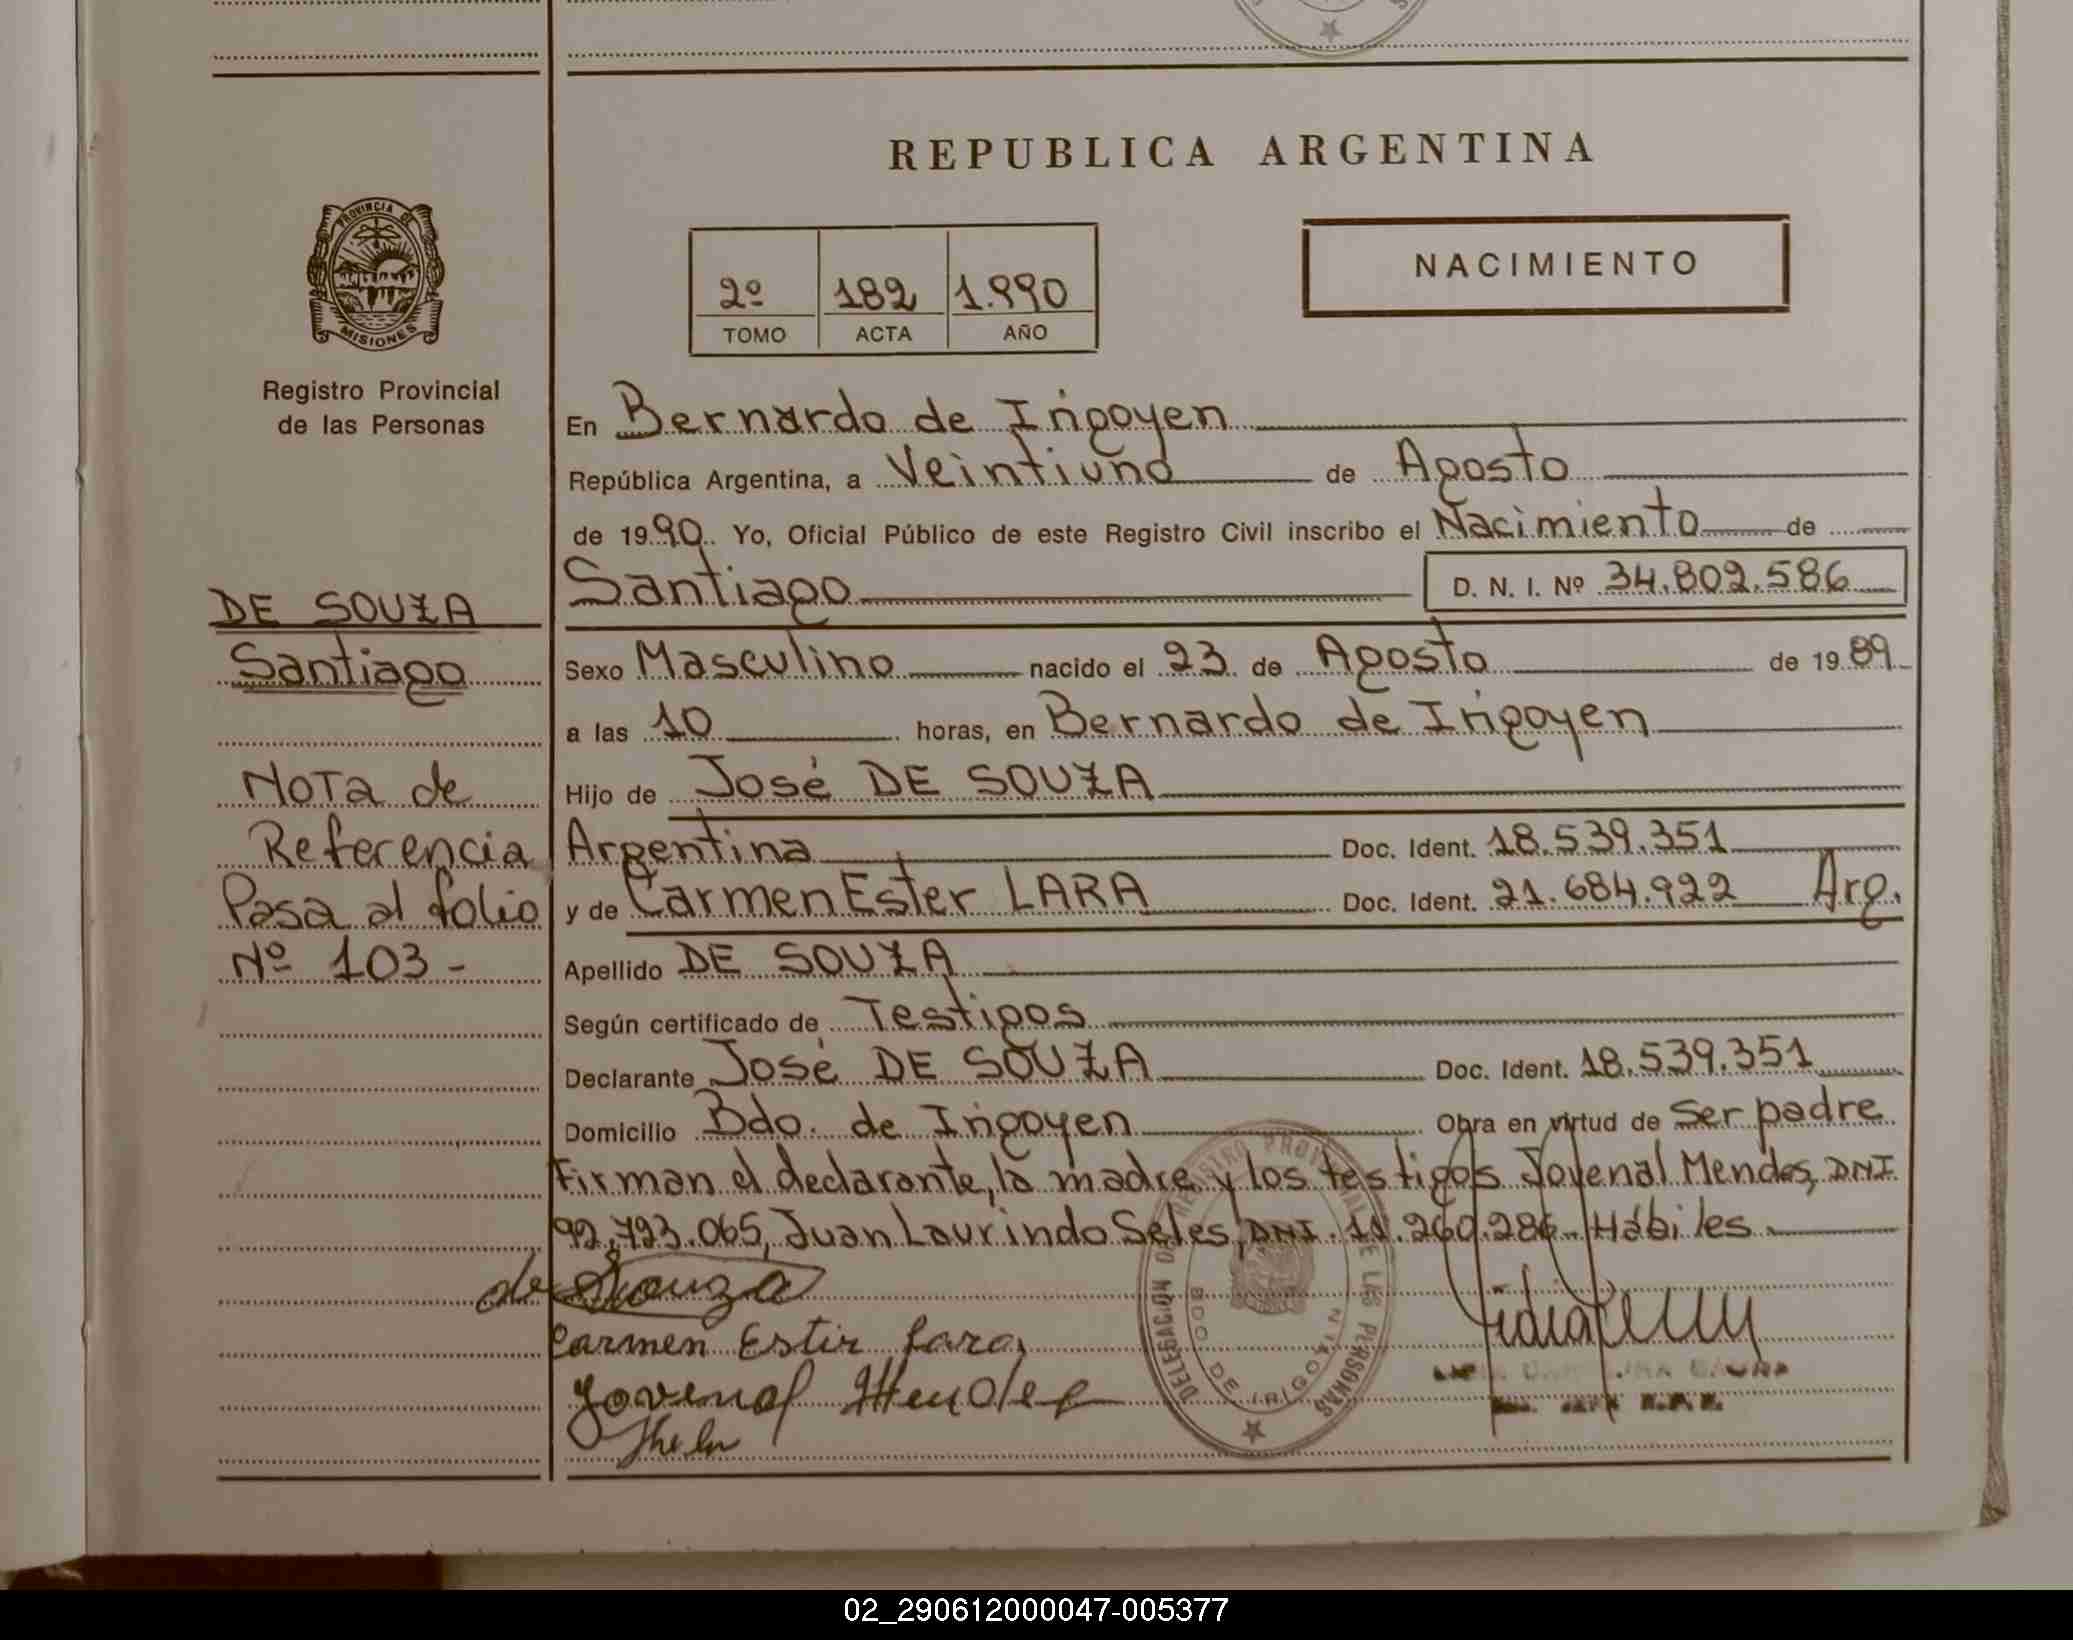 REPUBLICA ARGENTINA
PROVINCIA DE
MISIONES
Registro Provincial
de las Personas
NACIMIENTO
2º 182 1.990
TOMO ACTA AÑO
En Bernardo de Irigoyen
República Argentina, a Veintiuno de Agosto
de 1990 Yo, Oficial Público de este Registro Civil inscribo el Nacimiento de
Santiago D. N. I. Nº 34.802.586
Sexo Masculino nacido el 23 de Agosto de 1989
a las 10 horas, en Bernardo de Irigoyen
Hijo de José DE SOUZA
Argentina Doc. Ident. 18.539.351
y de Carmen Ester LARA Doc. Ident. 21.684.922 Arg.
Apellido DE SOUZA
Según certificado de Testigos
Declarante José DE SOUZA Doc. Ident. 18.539.351
Domicilio Bdo. de Irigoyen Obra en virtud de Ser padre
Firman el declarante, la madre y los testigos Jovenal Mendes, DNI
92.723.065, Juan Laurindo Seles, DNI. 11.260.286. Hábiles
de Souza
Carmen Ester Lara
Jovenal Mendes
DELEGACION REGISTRO PROVINCIAL DE LAS PERSONAS
BDO DE IRIGOYEN
DE SOUZA
Santiago
Nota de
Referencia
Pasa al folio
Nº 103-
02_290612000047-005377